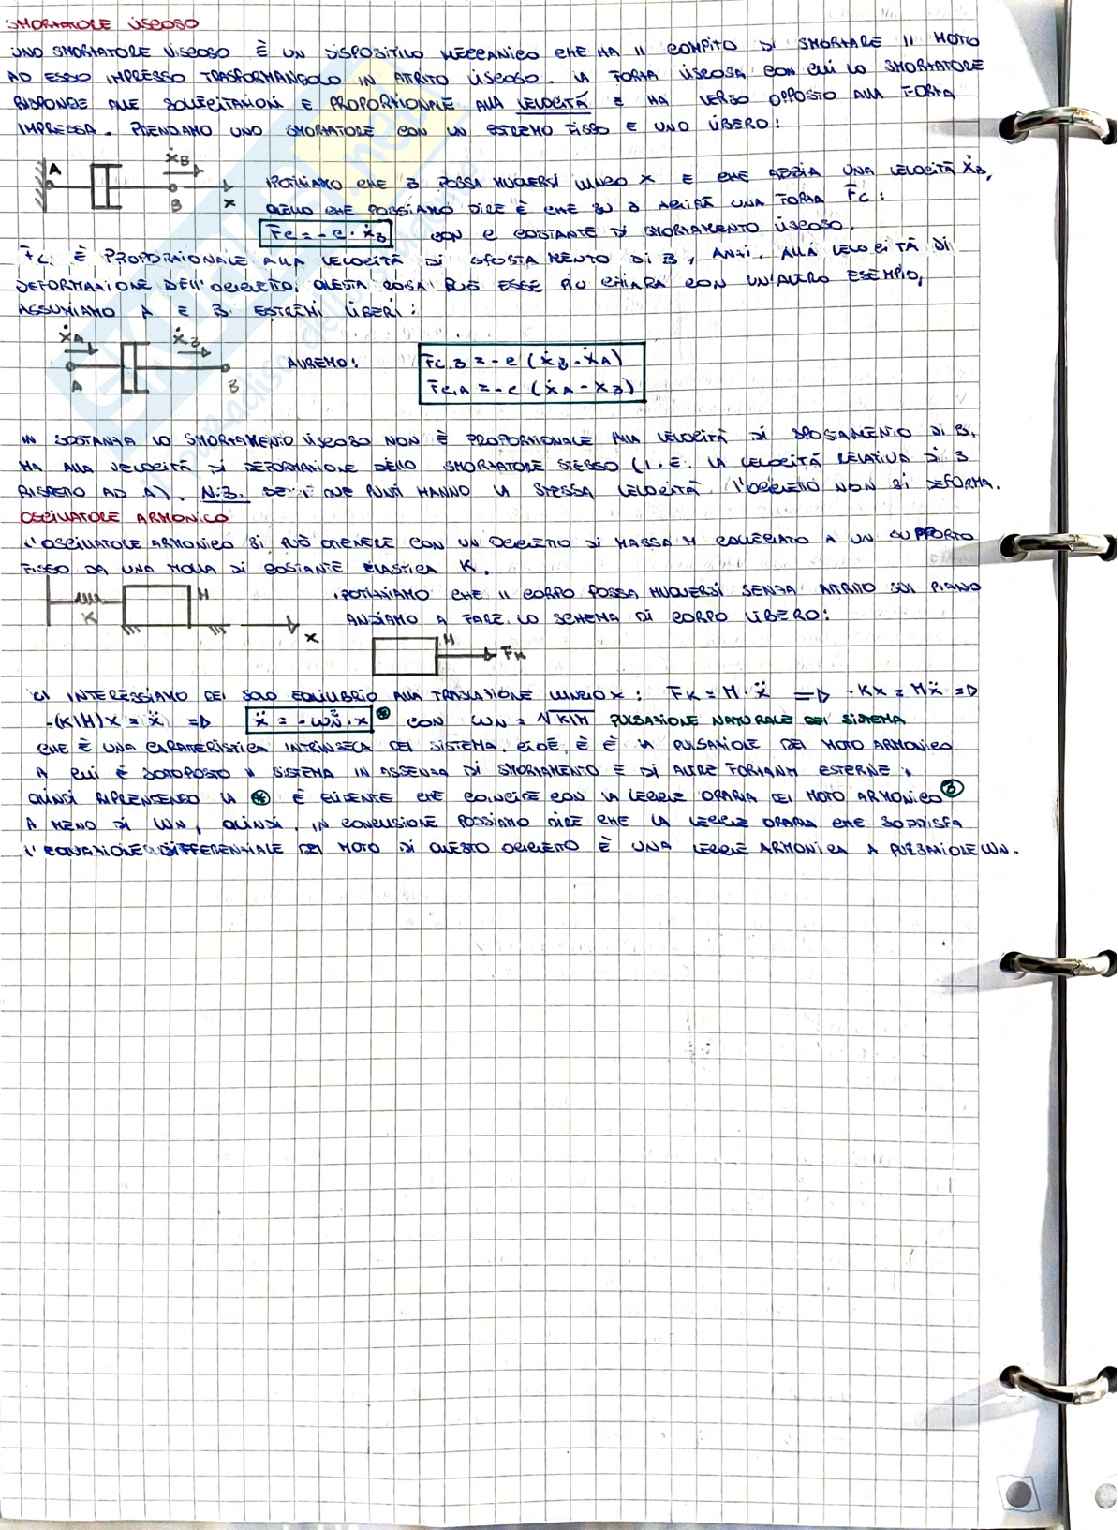 SMORZATORE VISCOSO
UNO SMORZATORE VISCOSO È UN DISPOSITIVO MECCANICO CHE HA IL COMPITO DI SMORZARE IL MOTO
AD ESSO IMPRESSO TRASFORMANDOLO IN ATTRITO VISCOSO. LA FORZA VISCOSA CON CUI LO SMORZATORE
RISPONDE ALLE SOLLECITAZIONI È PROPORZIONALE ALLA VELOCITÀ E HA VERSO OPPOSTO ALLA FORZA
IMPRESSA. PRENDIAMO UNO SMORZATORE CON UN ESTREMO FISSO E UNO LIBERO:
A ẋB B x
IPOTIZZIAMO CHE B POSSA MUOVERSI LUNGO X E CHE ABBIA UNA VELOCITÀ ẋB,
QUELLO CHE POSSIAMO DIRE È CHE SU B AGIRÀ UNA FORZA Fc:
Fc = -c · ẋB CON C COSTANTE DI SMORZAMENTO VISCOSO.
Fc È PROPORZIONALE ALLA VELOCITÀ DI SPOSTAMENTO DI B, ANZI, ALLA VELOCITÀ DI
DEFORMAZIONE DELL'OGGETTO. QUESTA COSA PUÒ ESSE PIÙ CHIARA CON UN'ALTRO ESEMPIO,
ASSUMIAMO A E B ESTREMI LIBERI:
ẋA ẋB A B
AVREMO:
Fc,B = -c (ẋB - ẋA)
Fc,A = -c (ẋA - ẋB)
IN SOSTANZA LO SMORZAMENTO VISCOSO NON È PROPORZIONALE ALLA VELOCITÀ DI SPOSAMENTO DI B,
MA ALLA VELOCITÀ DI DEFORMAZIONE DELLO SMORZATORE STESSO (I.E. LA VELOCITÀ RELATIVA DI B
RISPETTO AD A). N.B. SE I DUE PUNTI HANNO LA STESSA VELOCITÀ, L'OGGETTO NON SI DEFORMA.
OSCILLATORE ARMONICO
L'OSCILLATORE ARMONICO SI PUÒ OTTENERE CON UN OGGETTO DI MASSA M COLLEGATO A UN SUPPORTO
FISSO DA UNA MOLLA DI COSTANTE ELASTICA K.
K M x
IPOTIZZIAMO CHE IL CORPO POSSA MUOVERSI SENZA ATTRITO SUL PIANO
ANDIAMO A FARE LO SCHEMA DI CORPO LIBERO:
M FK
CI INTERESSIAMO DEL SOLO EQUILIBRIO ALLA TRASLAZIONE LUNGO X: FK = M · ẍ => -Kx = Mẍ =>
-(K/M)x = ẍ => ẍ = -ωN² · x ⊛ CON ωN = √K/M PULSAZIONE NATURALE DEL SISTEMA
CHE È UNA CARATTERISTICA INTRINSECA DEL SISTEMA, CIOÈ, È LA PULSAZIONE DEL MOTO ARMONICO
A CUI È SOTTOPOSTO IL SISTEMA IN ASSENZA DI SMORZAMENTO E DI ALTRE FORZANTI ESTERNE,
QUINDI RIPRENDENDO LA ⊛ È EVIDENTE CHE COINCIDE CON LA LEGGE ORARIA DEL MOTO ARMONICO
A MENO DI ωN, QUINDI, IN CONCLUSIONE POSSIAMO DIRE CHE LA LEGGE ORARIA CHE SODDISFA
L'EQUAZIONE DIFFERENZIALE DEL MOTO DI QUESTO OGGETTO È UNA LEGGE ARMONICA A PULSAZIONE ωN.